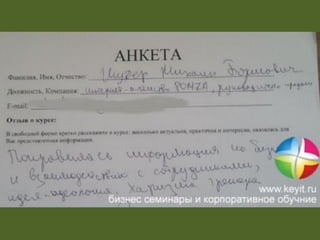 АНКЕТА
Фамилия, Имя, Отчество: Шубер Михаил Борисович
Должность, Компания: интернет-агентство PONZA, руководитель продаж
E-mail:
Отзыв о курсе:
В свободной форме кратко расскажите о курсе: насколько актуальна, практична и интересна, оказалась для
Вас представленная информация.
Понравилась информация по
взаимодействию с сотрудниками,
идея-идеология. Харизма тренера
www.keyit.ru
бизнес семинары и корпоративное обучние